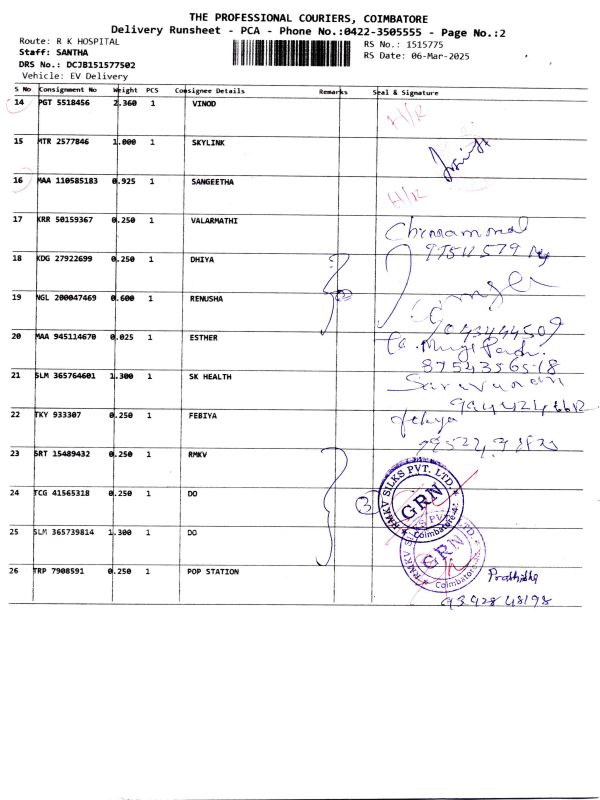 THE PROFESSIONAL COURIERS, COIMBATORE
Delivery Runsheet - PCA - Phone No.:0422-3505555 - Page No.:2
Route: R K HOSPITAL
RS No.: 1515775
Staff: SANTHA
RS Date: 06-Mar-2025
DRS No.: DCJB151577502
Vehicle: EV Delivery
S No Consignment No Weight PCS Consignee Details Remarks Seal & Signature
14 PGT 5518456 2.360 1 VINOD H/R
15 MTR 2577846 1.000 1 SKYLINK
16 MAA 110585183 0.925 1 SANGEETHA H/R
17 KRR 50159367 0.250 1 VALARMATHI
18 KDG 27922699 0.250 1 DHIYA
19 NGL 200047469 0.600 1 RENUSHA
20 MAA 945114670 0.025 1 ESTHER
21 SLM 365764601 1.300 1 SK HEALTH
8754356518
Saravanan
22 TKY 933307 0.250 1 FEBIYA
23 SRT 15489432 0.250 1 RMKV
24 TCG 41565318 0.250 1 DO 3
RMKV SILKS PVT. LTD.
GRN
Coimbatore-4
25 SLM 365739814 1.300 1 DO
GRN
Coimbatore
26 TRP 7908591 0.250 1 POP STATION